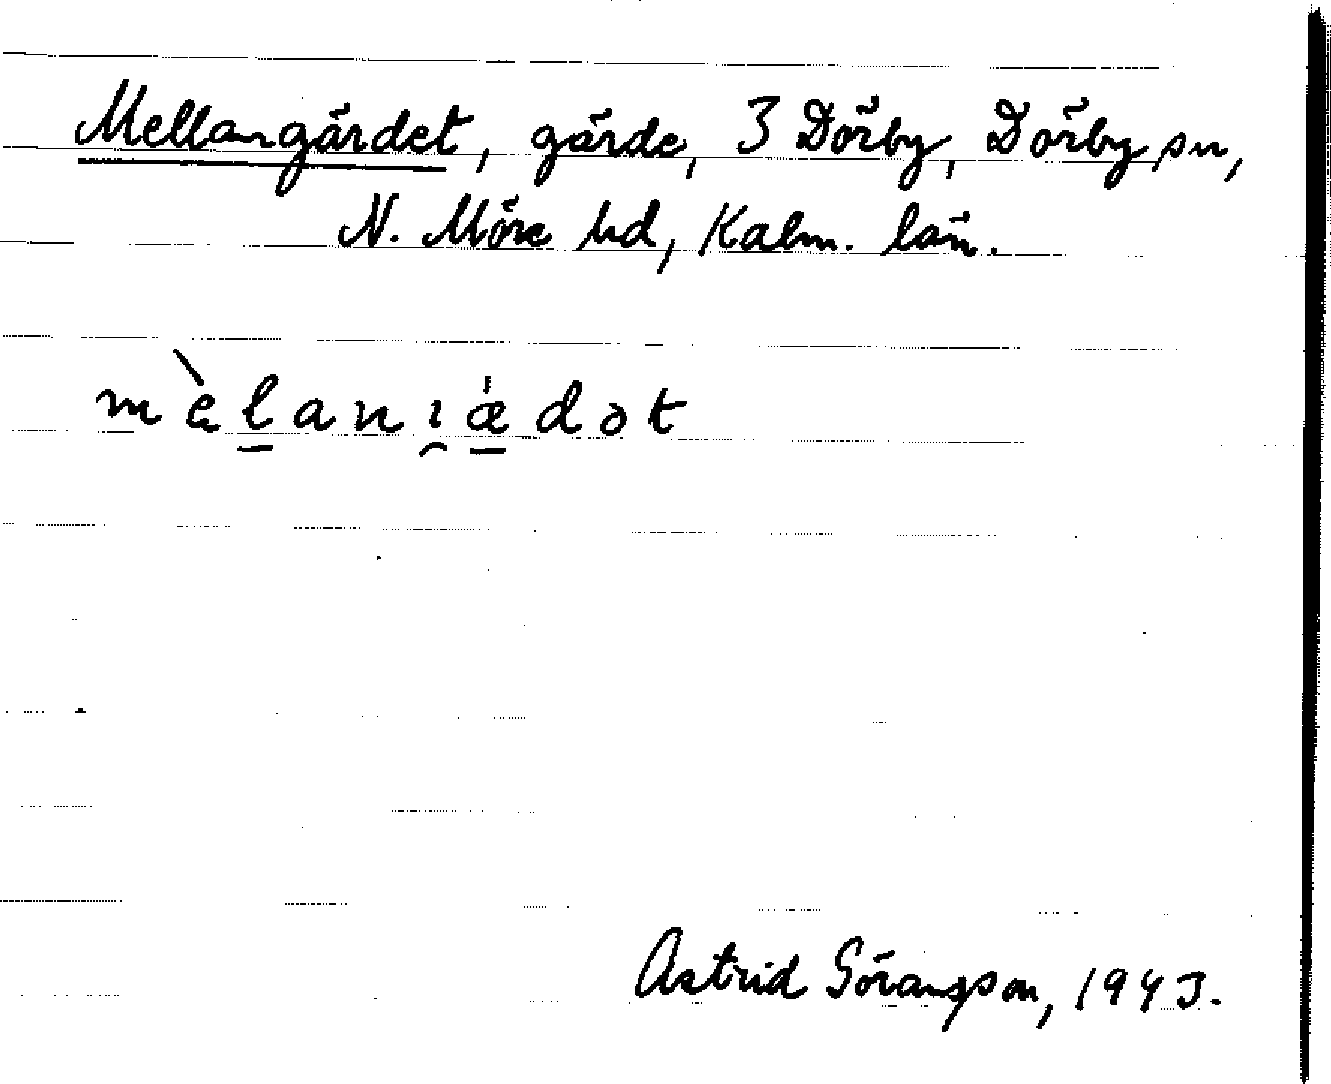 Mellangärdet, gärde, 3 Dörby, Dörby sn,
N. Möre hd, Kalm. län.
mèlanıædət
Astrid Göransson, 1943.